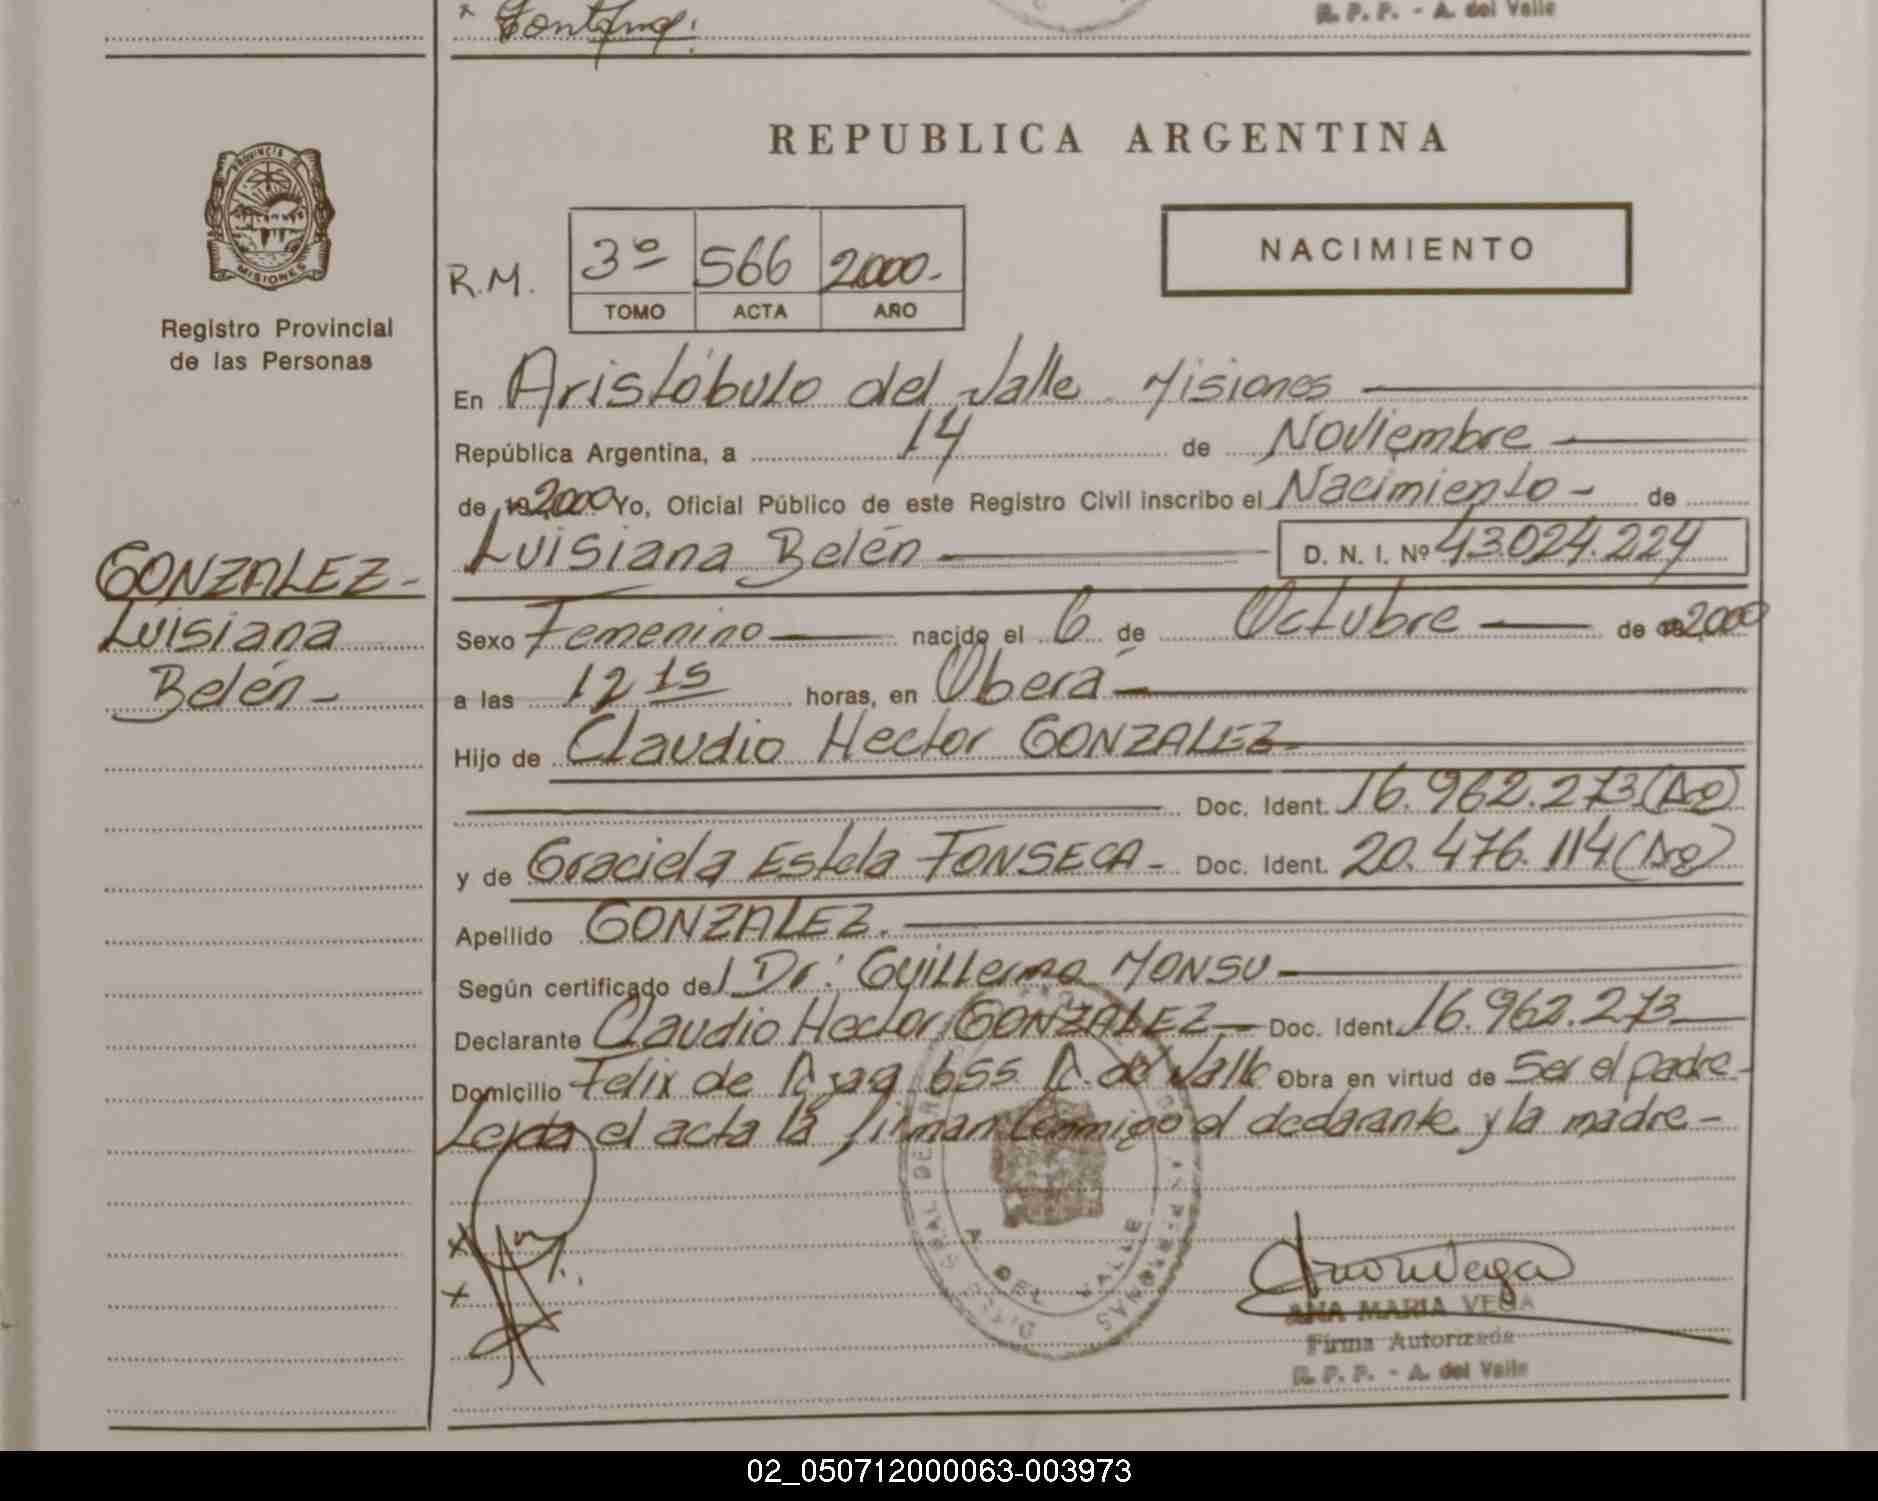 R. P. P. - A. del Valle
REPUBLICA ARGENTINA
PROVINCIA DE
MISIONES
Registro Provincial
de las Personas
R.M.
3º 566 2000.
TOMO ACTA AÑO
NACIMIENTO
En Aristóbulo del Valle Misiones
República Argentina, a 14 de Noviembre
de 192000 Yo, Oficial Público de este Registro Civil inscribo el Nacimiento - de
Luisiana Belén D. N. I. Nº 43.024.224
GONZALEZ-
Luisiana
Belén-
Sexo Femenino nacido el 6 de Octubre de 2000
a las 12 15 horas, en Oberá
Hijo de Claudio Hector GONZALEZ
Doc. Ident. 16.962.273 (Ag)
y de Graciela Estela FONSECA - Doc. Ident. 20.476.114 (Ag)
Apellido GONZALEZ.
Según certificado del Dr: Guillermo MONSU
Declarante Claudio Hector GONZALEZ Doc. Ident. 16.962.273
Domicilio Felix de Azag 655 A. del Valle Obra en virtud de Ser el padre-
Leida el acta la firman Conmigo el declarante y la madre-
DEL VALLE
ANA MARIA VEGA
Firma Autorizada
R. P. P. - A. del Valle
02_050712000063-003973